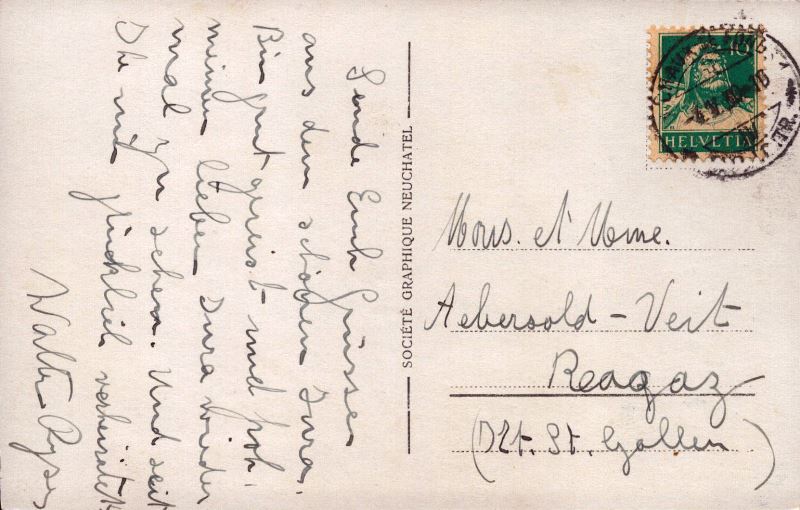 Sende Euch Grüsse
aus dem schönen Jura.
Bin gut gereist und froh
meinen lieben Jura wieder
mal zu sehen. Und seit
Ihr nun glücklich verheiratet?
Walter
SOCIÉTÉ GRAPHIQUE NEUCHATEL
10
HELVETIA
Mons. et Mme.
Aebersold - Veit
Ragaz
(Dkt. St. Gallen)